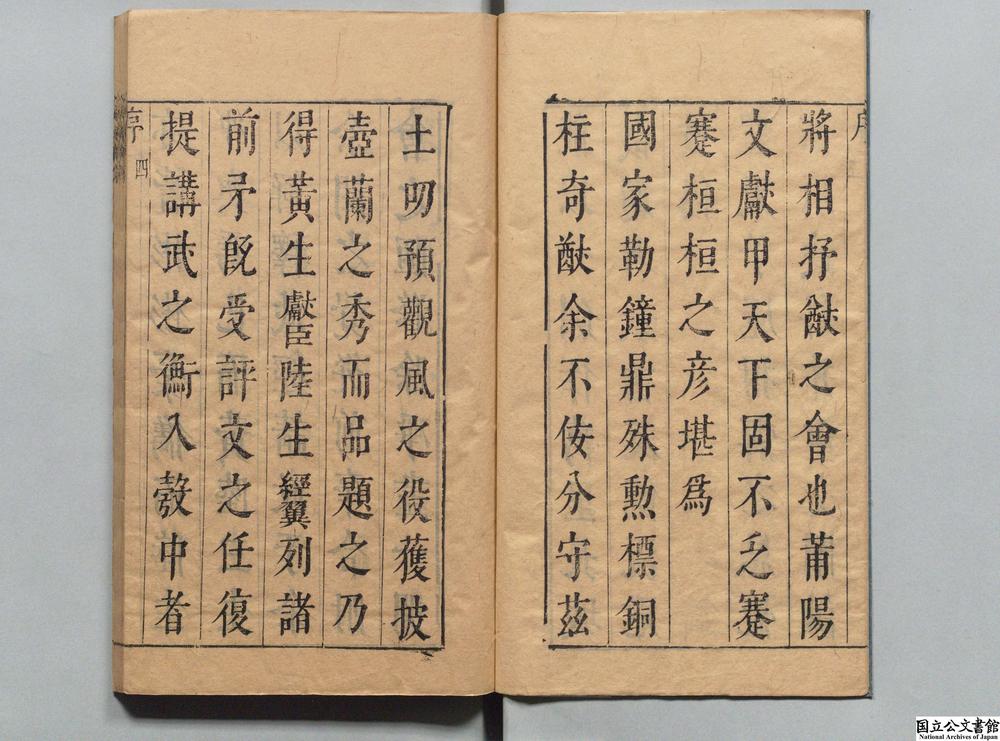 序
將相抒猷之會也莆陽
文獻甲天下固不乏蹇
蹇桓桓之彥堪爲
國家勒鐘鼎殊勲標銅
柱奇猷余不佞分守茲
土叨預觀風之役獲披
壺蘭之秀而品題之乃
得黃生獻臣陸生經翼列諸
前矛旣受評文之任復
提講武之衡入彀中者
序 四
国立公文書館
National Archives of Japan